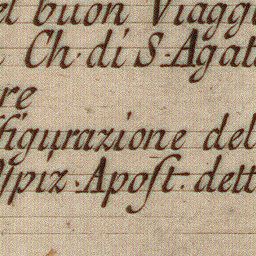 el buon Viaggi
Ch. di S. Agat
re
figurazione del
Ospiz. Apost. dett